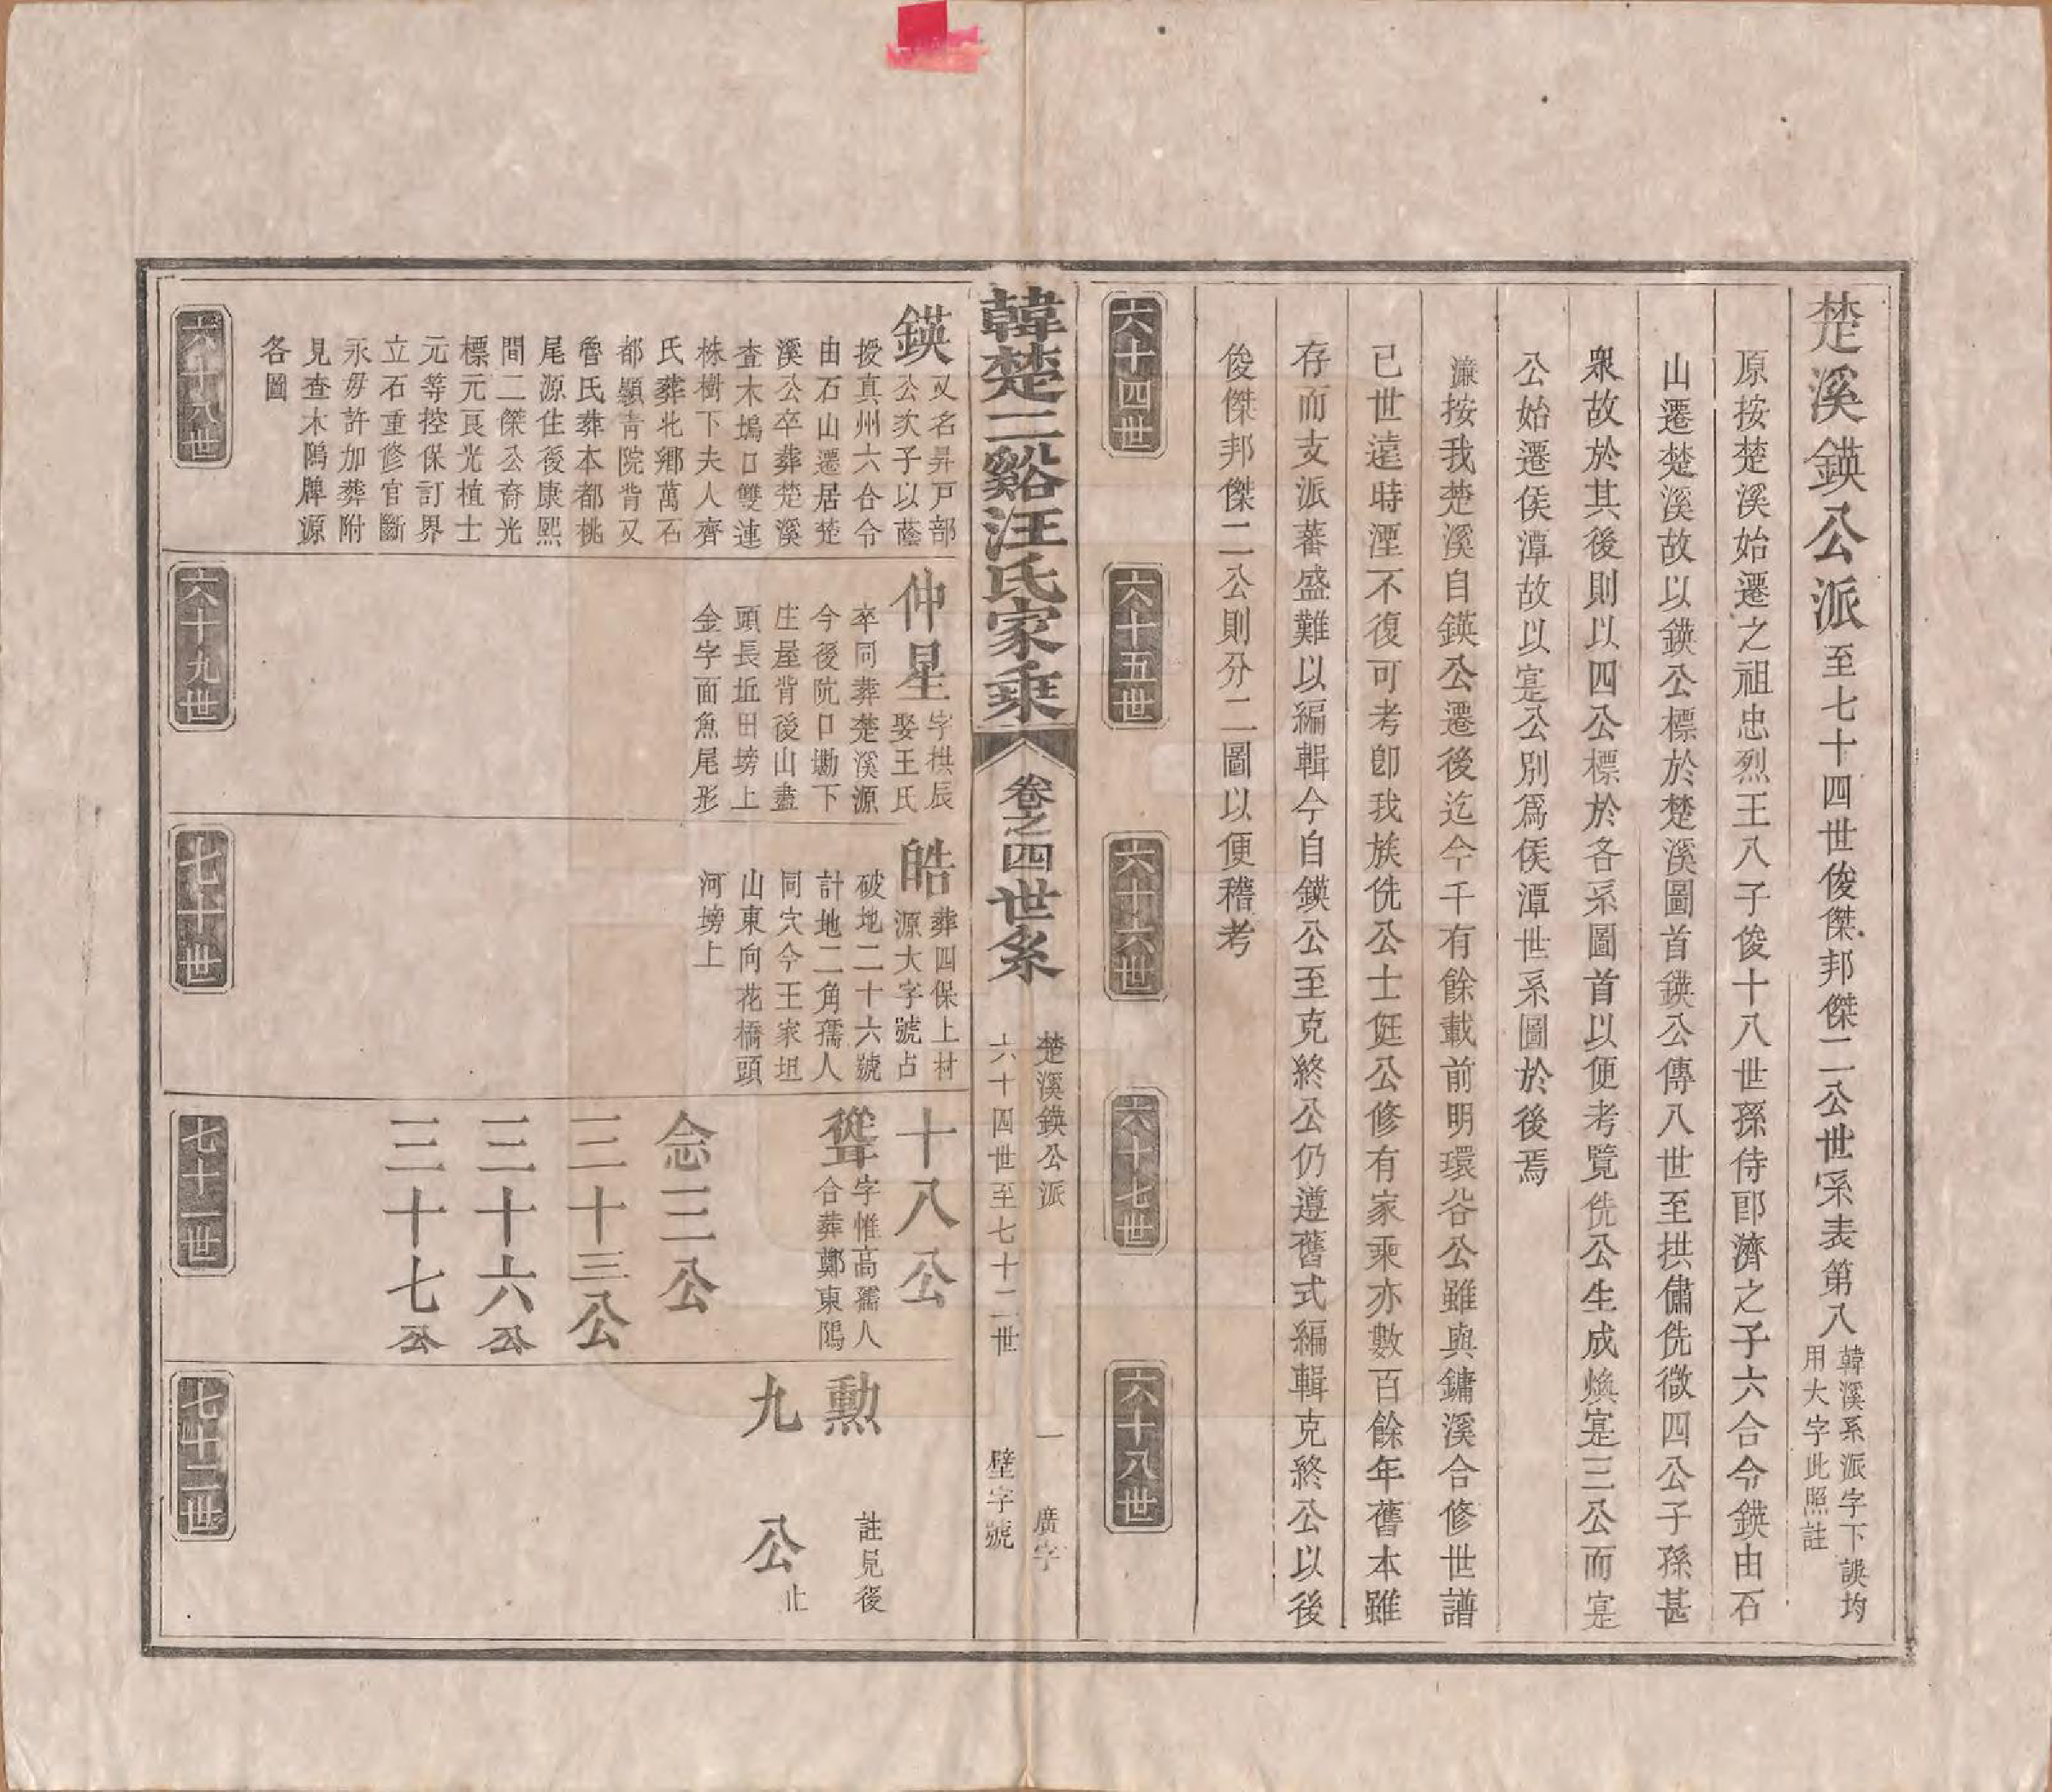 楚溪鍈公派至七十四世俊傑邦傑二公世系表第八
韓溪系派字下誤均
用大字此照註
原按楚溪始遷之祖忠烈王八子俊十八世孫侍郎濟之子六合令鍈由石
山遷楚溪故以鍈公標於楚溪圖首鍈公傳八世至拱傭侁微四公子孫甚
衆故於其後則以四公標於各系圖首以便考覽侁公生成煥寔三公而寔
公始遷侯潭故以寔公別爲侯潭世系圖於後焉
濂按我楚溪自鍈公遷後迄今千有餘載前明環谷公雖與鏞溪合修世譜
已世遠時湮不復可考卽我族侁公士侹公修有家乘亦數百餘年舊本雖
存而支派蕃盛難以編輯今自鍈公至克終公仍遵舊式編輯克終公以後
俊傑邦傑二公則分二圖以便稽考
六十四世
六十五世
六十六世
六十七世
六十八世
韓楚二谿汪氏家乘
卷之四世系
楚溪鍈公派
六十四世至七十二世
一
廣字
壁字號
鍈
又名昇戸部
公次子以蔭
授真州六合令
由石山遷居楚
溪公卒葬楚溪
查木塢口雙連
株樹下夫人齊
氏葬北鄉萬石
都顯青院背又
魯氏葬本都桃
尾源住後康熙
間二傑公裔光
標元良光植士
元等控保訂界
立石重修官斷
永毋許加葬附
見查木隝牌源
各圖
六十八世
仲星
字拱辰
娶王氏
卒同葬楚溪源
今後阬口墈下
庄屋背後山盡
頭長坵田塝上
金字面魚尾形
六十九世
皓
葬四保上村
源大字號占
破地二十六號
計地二角孺人
同穴今王家坦
山東向花橋頭
河塝上
七十世
十八公
聳
字惟高孺人
合葬鄭東隝
念三公
三十三公
三十六公
三十七公
七十一世
勲
註見後
九公
止
七十二世